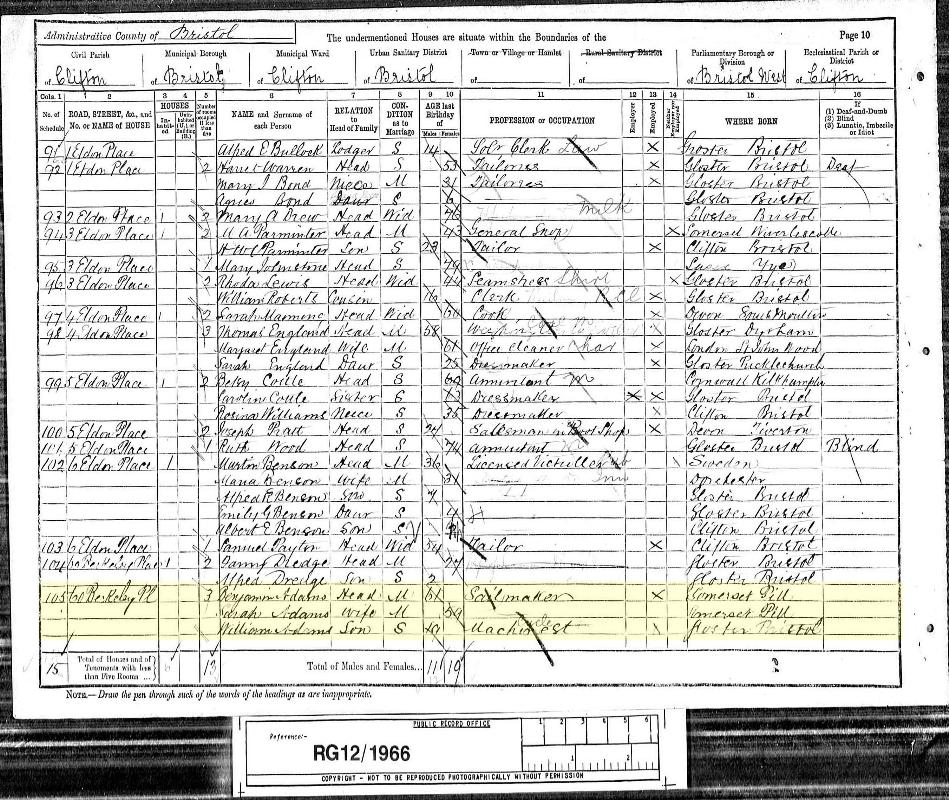 Administrative County of Bristol The undermentioned Houses are situate within the Boundaries of the Page 10
Civil Parish Municipal Borough Municipal Ward Urban Sanitary District Town or Village or Hamlet Rural Sanitary District Parliamentary Borough or Division Ecclesiastical Parish or District
of Clifton of Bristol of Clifton of Bristol of of of Bristol West of Clifton
Cols. 1 2 3 4 5 6 7 8 9 10 11 12 13 14 15 16
No. of Schedule ROAD, STREET, &c., and No. or NAME of HOUSE HOUSES Inhabited Uninhabited (U.), or Building (B.) Number of rooms occupied if less than five NAME and Surname of each Person RELATION to Head of Family CONDITION as to Marriage AGE last Birthday of Males Females PROFESSION or OCCUPATION Employer Employed WHERE BORN If (1) Deaf-and-Dumb (2) Blind (3) Lunatic, Imbecile or Idiot
91 1 Eldon Place Alfred E Bullock Lodger S 14 Solr Clerk Law X Bristol
92 1 Eldon Place 2 Warren Head S 53 Tailoress X Gloster Bristol Deaf
Mary J Bond Niece M 31 Tailoress X Gloster Bristol
Agnes Bond Daur S 6 Gloster Bristol
93 2 Eldon Place 1 2 Mary A Drew Head Wid 76 milk Gloster Bristol
94 3 Eldon Place 1 2 M A Parminter Head M 43 General Shop X Somerset
Parminter Son S 23 Tailor X Clifton Bristol
95 3 Eldon Place 1 Mary Johnstone Head S 74
96 3 Eldon Place 2 Rhoda Lewis Head Wid 44 Seamstress Shirt X Gloster Bristol
William Roberts Cousin 16 Clerk X Gloster Bristol
97 4 Eldon Place 1 2 Sarah Head Wid 60 Cook X Devon
98 4 Eldon Place 3 Thomas England Head M 58 X Gloster Dyrham
Margaret England Wife M 61 Office Cleaner Char X London St John Wood
Sarah England Daur S 25 Dressmaker X Gloster
99 5 Eldon Place 1 2 Betsy Coule Head S Annuitant Cornwall Kilkhampton
Caroline Coule Sister S Dressmaker X X Gloster Bristol
Rosina Williams Neice S 35 Dressmaker Clifton Bristol
100 5 Eldon Place 2 Joseph Pratt Head S Salesman in Boot Shop X Devon Tiverton
101 5 Eldon Place 1 Ruth Wood Head S 74 Annuitant Gloster Bristol Blind
102 6 Eldon Place 1 Martin Benson Head M 36 Licensed Victuller Inn Sweden
Maria Benson Wife M 31 Dorchester
Alfred R Benson Son S 7 Gloster Bristol
Emily G Benson Daur S 4 Gloster Bristol
Albert E Benson Son S Clifton Bristol
103 6 Eldon Place 1 Samuel Payton Head Wid 54 Tailor X Clifton Bristol
104 60 Berkeley Place 1 2 Fanny Dredge Head M 27 Gloster Bristol
Alfred Dredge Son S 2 Gloster Bristol
105 60 Berkeley Pl 3 Benjamin Adams Head M 61 Sailmaker X Somerset Pill
Sarah Adams Wife M 59 Somerset Pill
William Adams Son S 19 Machinest Gloster Bristol
15 Total of Houses and of Tenements with less than Five Rooms ... 6 13 Total of Males and Females... 11 19
NOTE.— Draw the pen through such of the words of the headings as are inappropriate.
PUBLIC RECORD OFFICE
1 2 3 4 5 6
Reference:-
RG12/1966
1 2
COPYRIGHT - NOT TO BE REPRODUCED PHOTOGRAPHICALLY WITHOUT PERMISSION